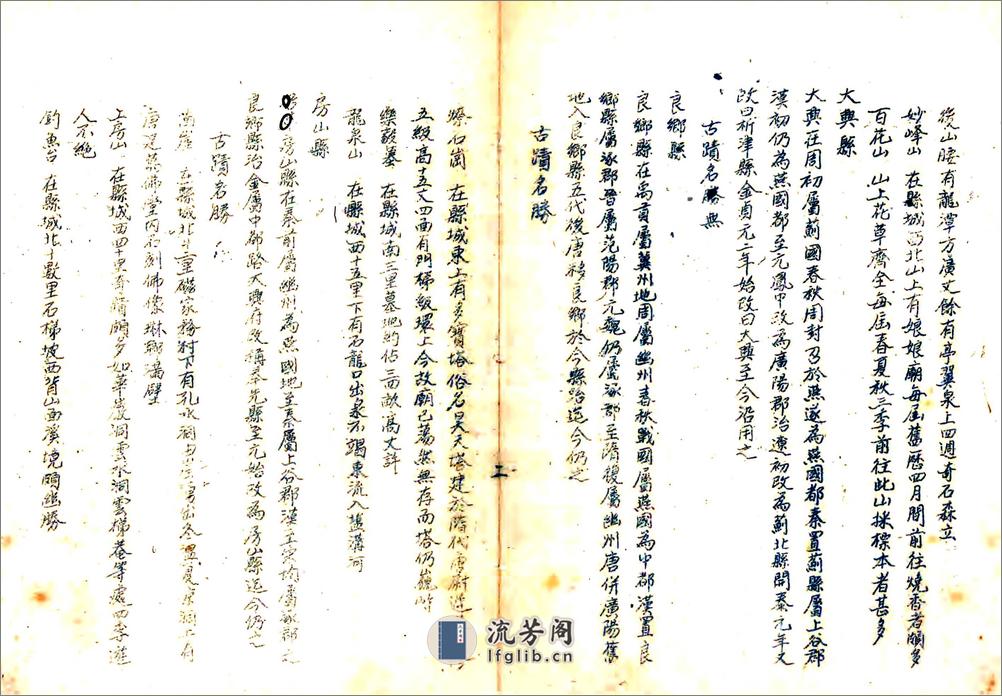 後山腰有龍潭方廣丈餘有亭翼泉上四週奇石森立
妙峰山 在縣城西北山上有娘娘廟每屆舊曆四月間前往燒香者頗多
百花山 山上花草齊全每屆春夏秋三季前往此山採標本者甚多
大興縣
大興在周初屬薊國春秋周封召於燕遂為燕國都秦置薊縣屬上谷郡
漢初仍為燕國都至元鳳中改為廣陽郡治遼初改為薊北縣開泰元年又
改曰析津縣金貞元二年始改曰大興至今沿用之
古蹟名勝無
良鄉縣
良鄉縣在禹貢屬冀州地周屬幽州春秋戰國屬燕國為中都漢置良
鄉縣屬涿郡晉屬范陽郡元魏仍屬涿郡至隋後屬幽州唐併廣陽舊
地入良鄉縣五代後唐移良鄉於今縣治迄今仍之
古蹟名勝
燎石崗 在縣城東上有多寶塔俗名昊天塔建於隋代唐尉遲
五級高十五丈四面有門梯級環上今故廟已蕩然無存而塔仍巍峙
樂毅墓 在縣城南三里墓地約佔三畝高丈許
龍泉山 在縣城西十五里下有石龍口出泉不竭東流入鹽溝河
房山縣
房山縣在秦前屬幽州為燕國地至秦屬上谷郡漢 屬涿郡 之
良鄉縣治金屬中都路大興府改稱奉先縣至元始改為房山縣迄今仍之
古蹟名勝
在縣城北 里磁家務村下有孔水洞 冬溫夏涼洞上有
唐建 佛堂內石刻佛像琳瑯滿壁
上房山 在縣城西四十里奇蹟頗多如華嚴洞雲水洞雲梯菴等處四季遊
人不絕
釣魚台 在縣城北十數里石梯坡西背山面溪境頗幽勝
二
流芳阁
lfglib.cn